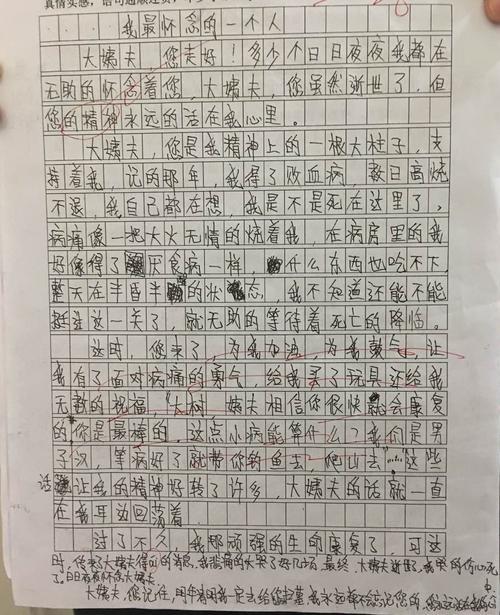 真情实感，语句通顺连贯，不
我最怀念的一个人
大姨夫，您走好！多少个日日夜夜我都在
无助的怀念着您，大姨夫，您虽然逝世了，但
您的精神永远的活在我心里。
大姨夫，您是我精神上的一根大柱子，支
持着我，记的那年，我得了败血病，数日高烧
不退，我自己都在想，我是不是死在这里了，
病痛像一把大火无情的烧着我，在病房里的我
好像得了厌食病一样，什么东西也吃不下，
整天在半昏半的状态，我不知道还能不能
挺过这一关了，就无助的等待着死亡的降临。
这时，您来了，为我加油，为我鼓气，让
我有了面对病痛的勇气，给我买了玩具还给我
无数的祝福，“大树，姨夫相信你很快就会康复
的，你是最棒的，这点小病能算什么？我们是男
子汉，等病好了就带你钓鱼去，爬山去”……这些
话让我的精神好转了许多，大姨夫的话就一直
在我耳边回荡着。
过了不久，我那顽强的生的康复了，可这
时，传来了大姨夫得病的消息，我悲痛的大哭了好几场，最终，大姨夫逝世了，我的伤心死
了，日日夜夜怀念大姨夫。
大姨夫，您记住，我一定去给您扫墓，我永远都不会忘记您的，